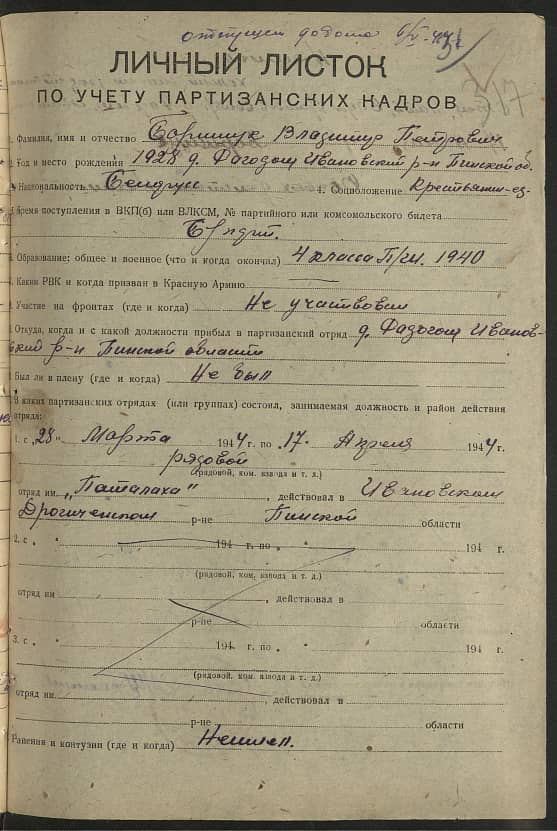 отпущен домой 6/V-44г
ЛИЧНЫЙ ЛИСТОК
ПО УЧЕТУ ПАРТИЗАНСКИХ КАДРОВ
Фамилия, имя и отчество Борищук Владимир Петрович
2. Год и место рождения 1928 д. Ивановский р-н Пинской об.
Национальность Белорус 4. Соцположение Крестьянин-ед-
Время поступления в ВКП(б) или ВЛКСМ, № партийного или комсомольского билета
Б/парт.
Образование; общее и военное (что и когда окончил) 4 класса 1940
Каким РВК и когда призван в Красную Армию
Участие на фронтах (где и когда) Не участвовал
Откуда, когда и с какой должности прибыл в партизанский отряд д. Иванов-
ский р-н Пинской области
Был ли в плену (где и когда) Не был
В каких партизанских отрядах (или группах) состоял, занимаемая должность и район действия
отряда:
1. с „28" Марта 1944 г. по „17" Апреля 1944 г.
рядовой
(рядовой, ком. взвода и т. д.)
отряд им. „Паталаха", действовал в Ивановском
Дрогиченском р-не Пинской области
2. с „ " 194 г. по „ " 194 г.
(рядовой, ком. взвода и т. д.)
отряд им , действовал в
р-не области
3. с „ " 194 г. по „ " 194 г.
(рядовой, ком. взвода и т. д.)
отряд им. , действовал в
р-не области
Ранения и контузии (где и когда) Не имел.